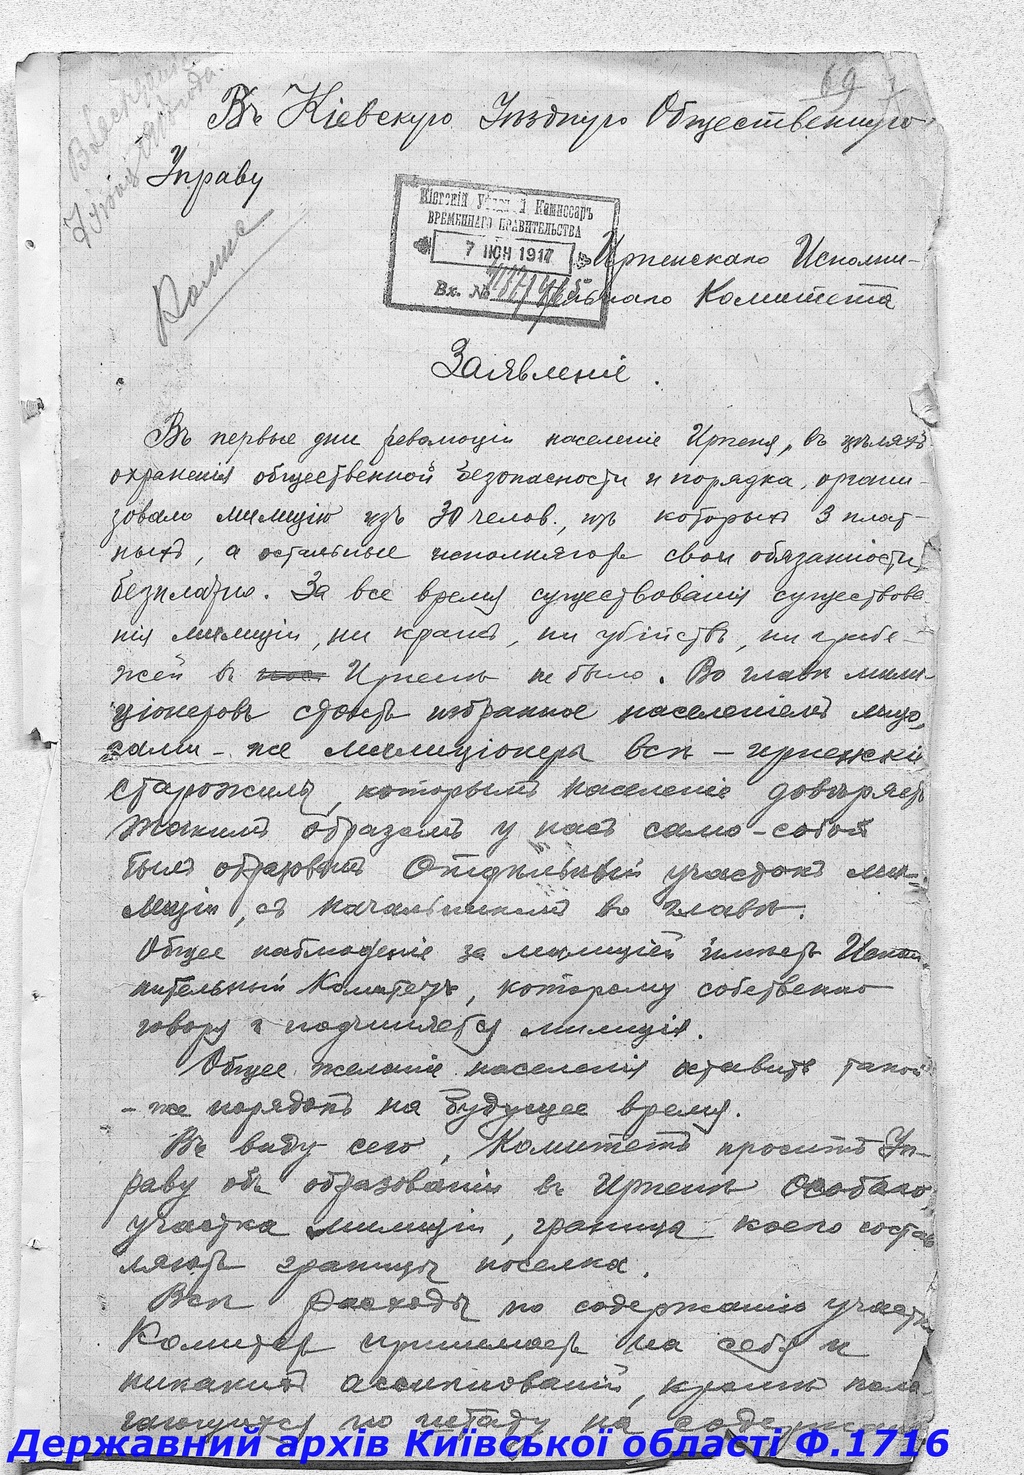 69
Въ Кіевскую Уѣздную Общественную
Управу
Кіевскій Уѣздный Комиссаръ
ВРЕМЕННАГО ПРАВИТЕЛЬСТВА
7 ІЮН 1917
Вх. №
Ирпенскаго Исполни-
тельнаго Комитета
Заявленіе.
Въ первые дни революціи населеніе Ирпеня, въ цѣляхъ
охраненія общественной безопасности и порядка, органи-
зовало милицію изъ 30 челов., изъ которыхъ 3 плат-
ныхъ, а остальные исполняютъ свои обязанности
безплатно. За все время существованія существова-
нія милиціи, ни кражъ, ни убійствъ, ни грабе-
жей въ Ирпенѣ не было. Во главѣ мили-
ціонеровъ стоитъ избранное населеніемъ лицо,
сами-же милиціонеры всѣ - ирпенскіе
старожилы, которымъ населеніе довѣряетъ
Такимъ образомъ у насъ само-собой
былъ образованъ Отдѣльный участокъ ми-
лиціи, съ начальникомъ во главѣ.
Общее наблюденіе за милиціей имѣетъ Испол-
нительный Комитетъ, которому собственно
говоря и подчиняется милиція.
Общее желаніе населенія оставить такой
-же порядокъ на будущее время.
Въ виду сего, Комитетъ проситъ Уп-
раву объ образованіи въ Ирпенѣ Особаго
участка милиціи, границы коего состав
ляютъ границы поселка.
Всѣ расходы по содержанію участка
Комитетъ принимаетъ на себя и
никакихъ ассигнованій, кромѣ пола-
гающихся по штату на содержаніе
Державний архів Київської області Ф.1716